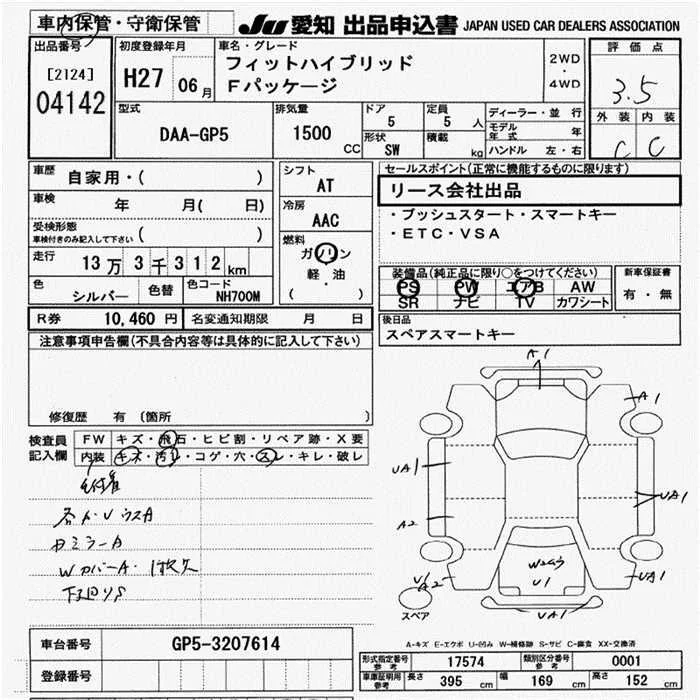 車内保管・守衛保管
JU 愛知 出品申込書 JAPAN USED CAR DEALERS ASSOCIATION
出品番号
[2124]
04142
初度登録年月
H27 06月
車名・グレード
フィットハイブリッド
Fパッケージ
2WD
・
4WD
評価点
3.5
外装 内装
C C
型式
DAA-GP5
排気量
1500 CC
ドア
5
定員
5 人
形状
SW
積載
kg
ディーラー・並行
モデル年式 年
ハンドル 左・右
車歴
自家用・( )
車検
年 月( 日)
受検形態
車検付きのみ記入して下さい ( )
走行
13万3千312km
色
シルバー
色替
色コード
NH700M
シフト
AT
冷房
AAC
燃料
ガソリン
軽・油
( )
セールスポイント(正常に機能するものに限ります)
リース会社出品
・プッシュスタート・スマートキー
・ETC・VSA
装備品(純正品に限り○をつけてください)
PS PW エアB AW
SR ナビ TV カワシート
新車保証書
有・無
R券 10,460 円 名変通知期限 月 日
後日品
スペアスマートキー
注意事項申告欄(不具合内容等は具体的に記入して下さい)
修復歴 有 (箇所 )
検査員
記入欄
FW キズ・飛石・ヒビ割・リペア跡・X要
内装 キズ・汚レ・コゲ・穴・スレ・キレ・破レ
各カドウスA
ミラーA
WカバーA・
下回りS
A1
A1
UA1
UA1
A2
A2
UA1
U1
UA1
スペア
A-キズ E-エクボ U-凹み W-補修跡 S-サビ C-腐食 XX-交換済
車台番号 GP5-3207614
登録番号
形式指定番号 参考 17574 類別区分番号 参考 0001
車庫証明用 参考 長さ 395 cm 幅 169 cm 高さ 152 cm